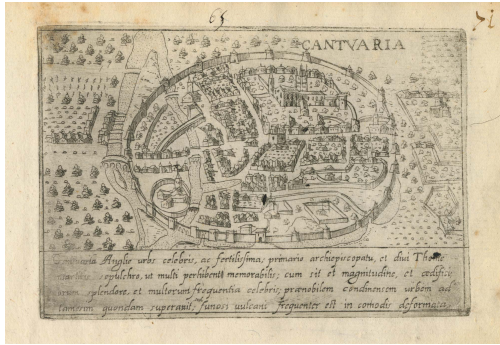 65
71
CANTVARIA
Anglię urbs celebris, ac fertilissima, primario archiepiscopatu, et diui Thomę
sepulchro, ut multi perhibent memorabilis, cum sit et magnitudine, et ędificij
splendore, et multorum frequentia celebris, prænobilem Londinensem urbem
quondam superauit, funosi vulcani frequenter est in comodis deformata